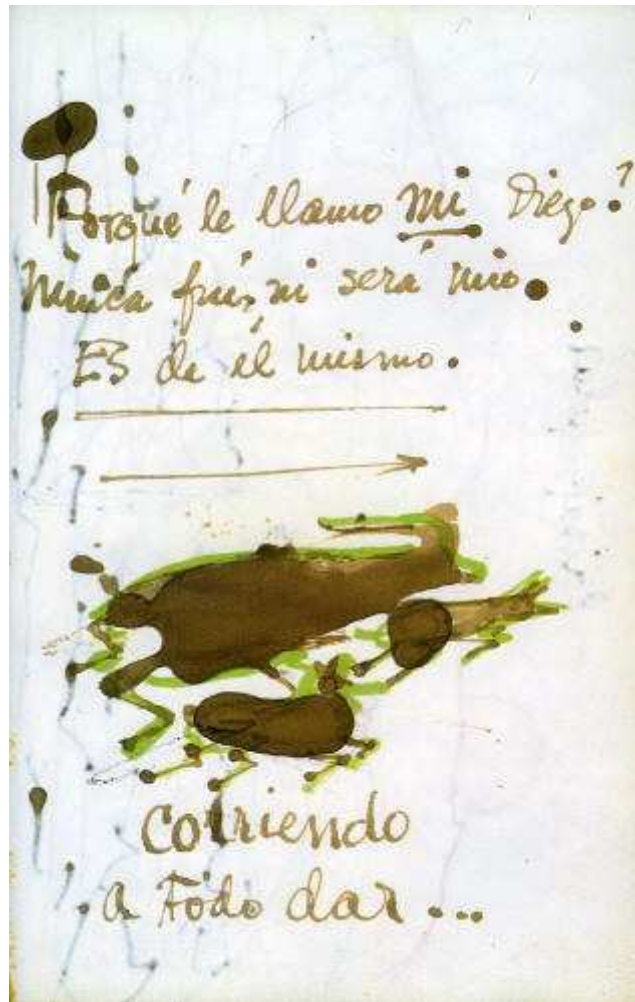 Porqué le llamo mi Diego?
Nunca fué, ni será mio.
ES de él mismo.
Corriendo
a Todo dar...